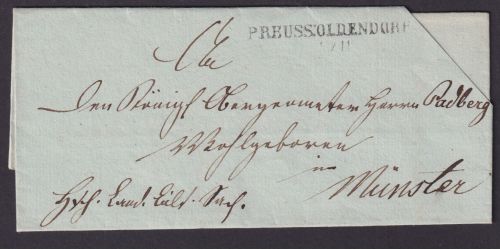 PREUSS:OLDENDORF
An
den Königl Obergeometer Herrn Radberg
Wohlgeboren
in
Münster
Hrsch. Land. Cult. Sach.